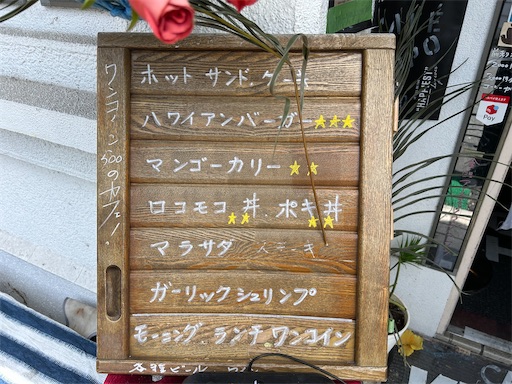 ワンコイン500のカフェ!
ホットサンド.ケーキ
ハワイアンバーガー
マンゴーカリー
ロコモコ丼.ポキ丼
マラサダ ステーキ
ガーリックシュリンプ
モーニング.ランチ.ワンコイン
各種ビール
"HAPPIEST"
Pay